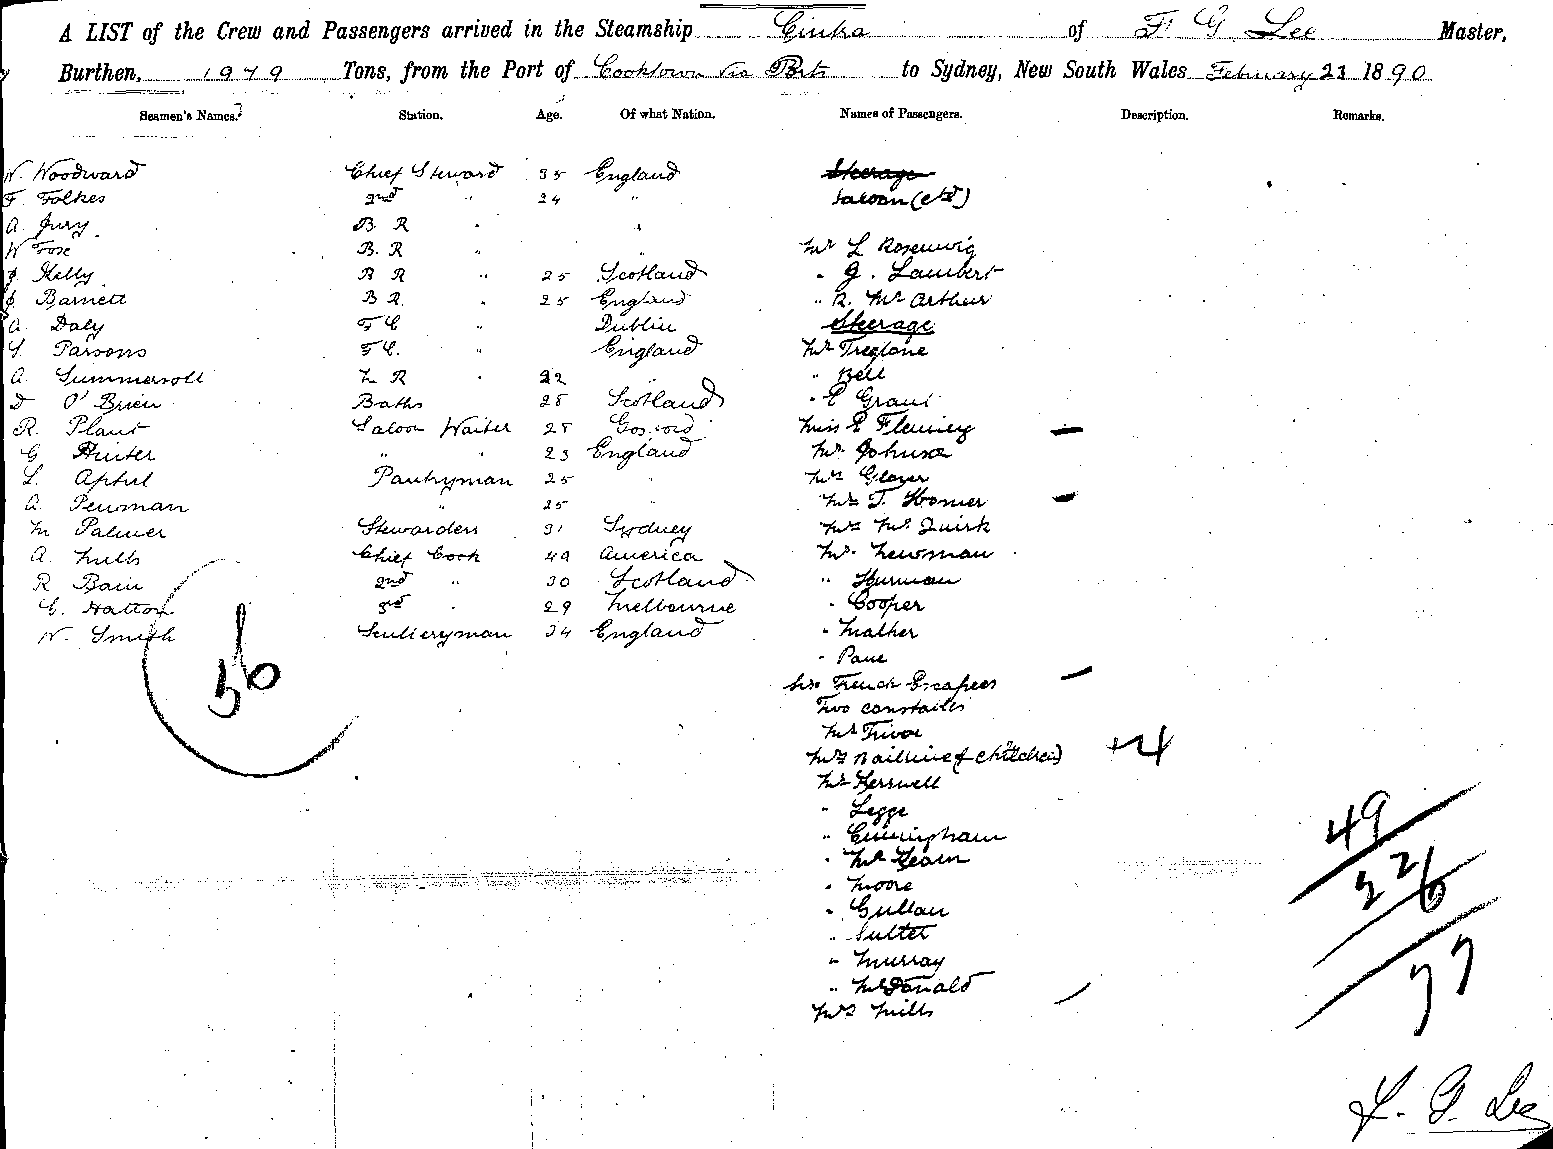 A LIST of the Crew and Passengers arrived in the Steamship Cintra of F. G Lee Master,
Burthen, 1979 Tons, from the Port of Cooktown via Ports to Sydney, New South Wales February 23 1890
Seamen's Names. Station. Age. Of what Nation. Names of Passengers. Description. Remarks.
W. Woodward Chief Steward 35 England Steerage
F. Folkes 2nd " 24 " Saloon
A. Jury B. R " "
W Fox B. R " Mr L Rosenwig
J. Kelly B R " 25 Scotland " G. Lambert
J. Barnett B R. " 25 England " R. McArthur
A. Daly F C " Dublin Steerage
Parsons F C. " England Mr Treglone
A. Summersoll L R " 22 " " Bell
D O'Brien Baths 28 Scotland " E Grant
R. Plant Saloon Waiter 28 Miss E Fleming
G " " 23 England Mr Johnson
L. Pantryman 25 " Mr Glover
A. Penman " 25 Mrs T. Homer
M Palmer Stewardess 31 Sydney Mrs McQuirk
A. Mills Chief Cook 49 America Mr. Newman
R Bain 2nd " 30 Scotland "
C. Hatton 3rd " 29 Melbourne " Cooper
W. Smith Sculleryman 34 England " Mather
" Pane
56
French Escapees
Two constables
Mr
Mrs children +4
Mr Kerswell
" Legge
" Cunningham
"
" Moore
" Gullan
"
" Murray
" McDonald
Mrs Mills
49
77
F. G. Lee